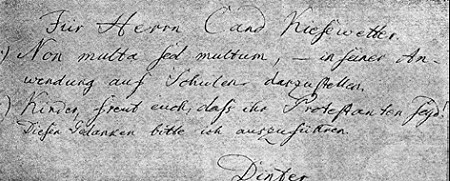 Für Herrn Cand Kiesewetter.
) Non multa sed multum, – in seiner An-
wendung auf Schulen darzustellen.
) Kinder, freut euch, dass ihr Protestanten seyd!
Diesen Gedanken bitte ich auszuführen.
Dinter